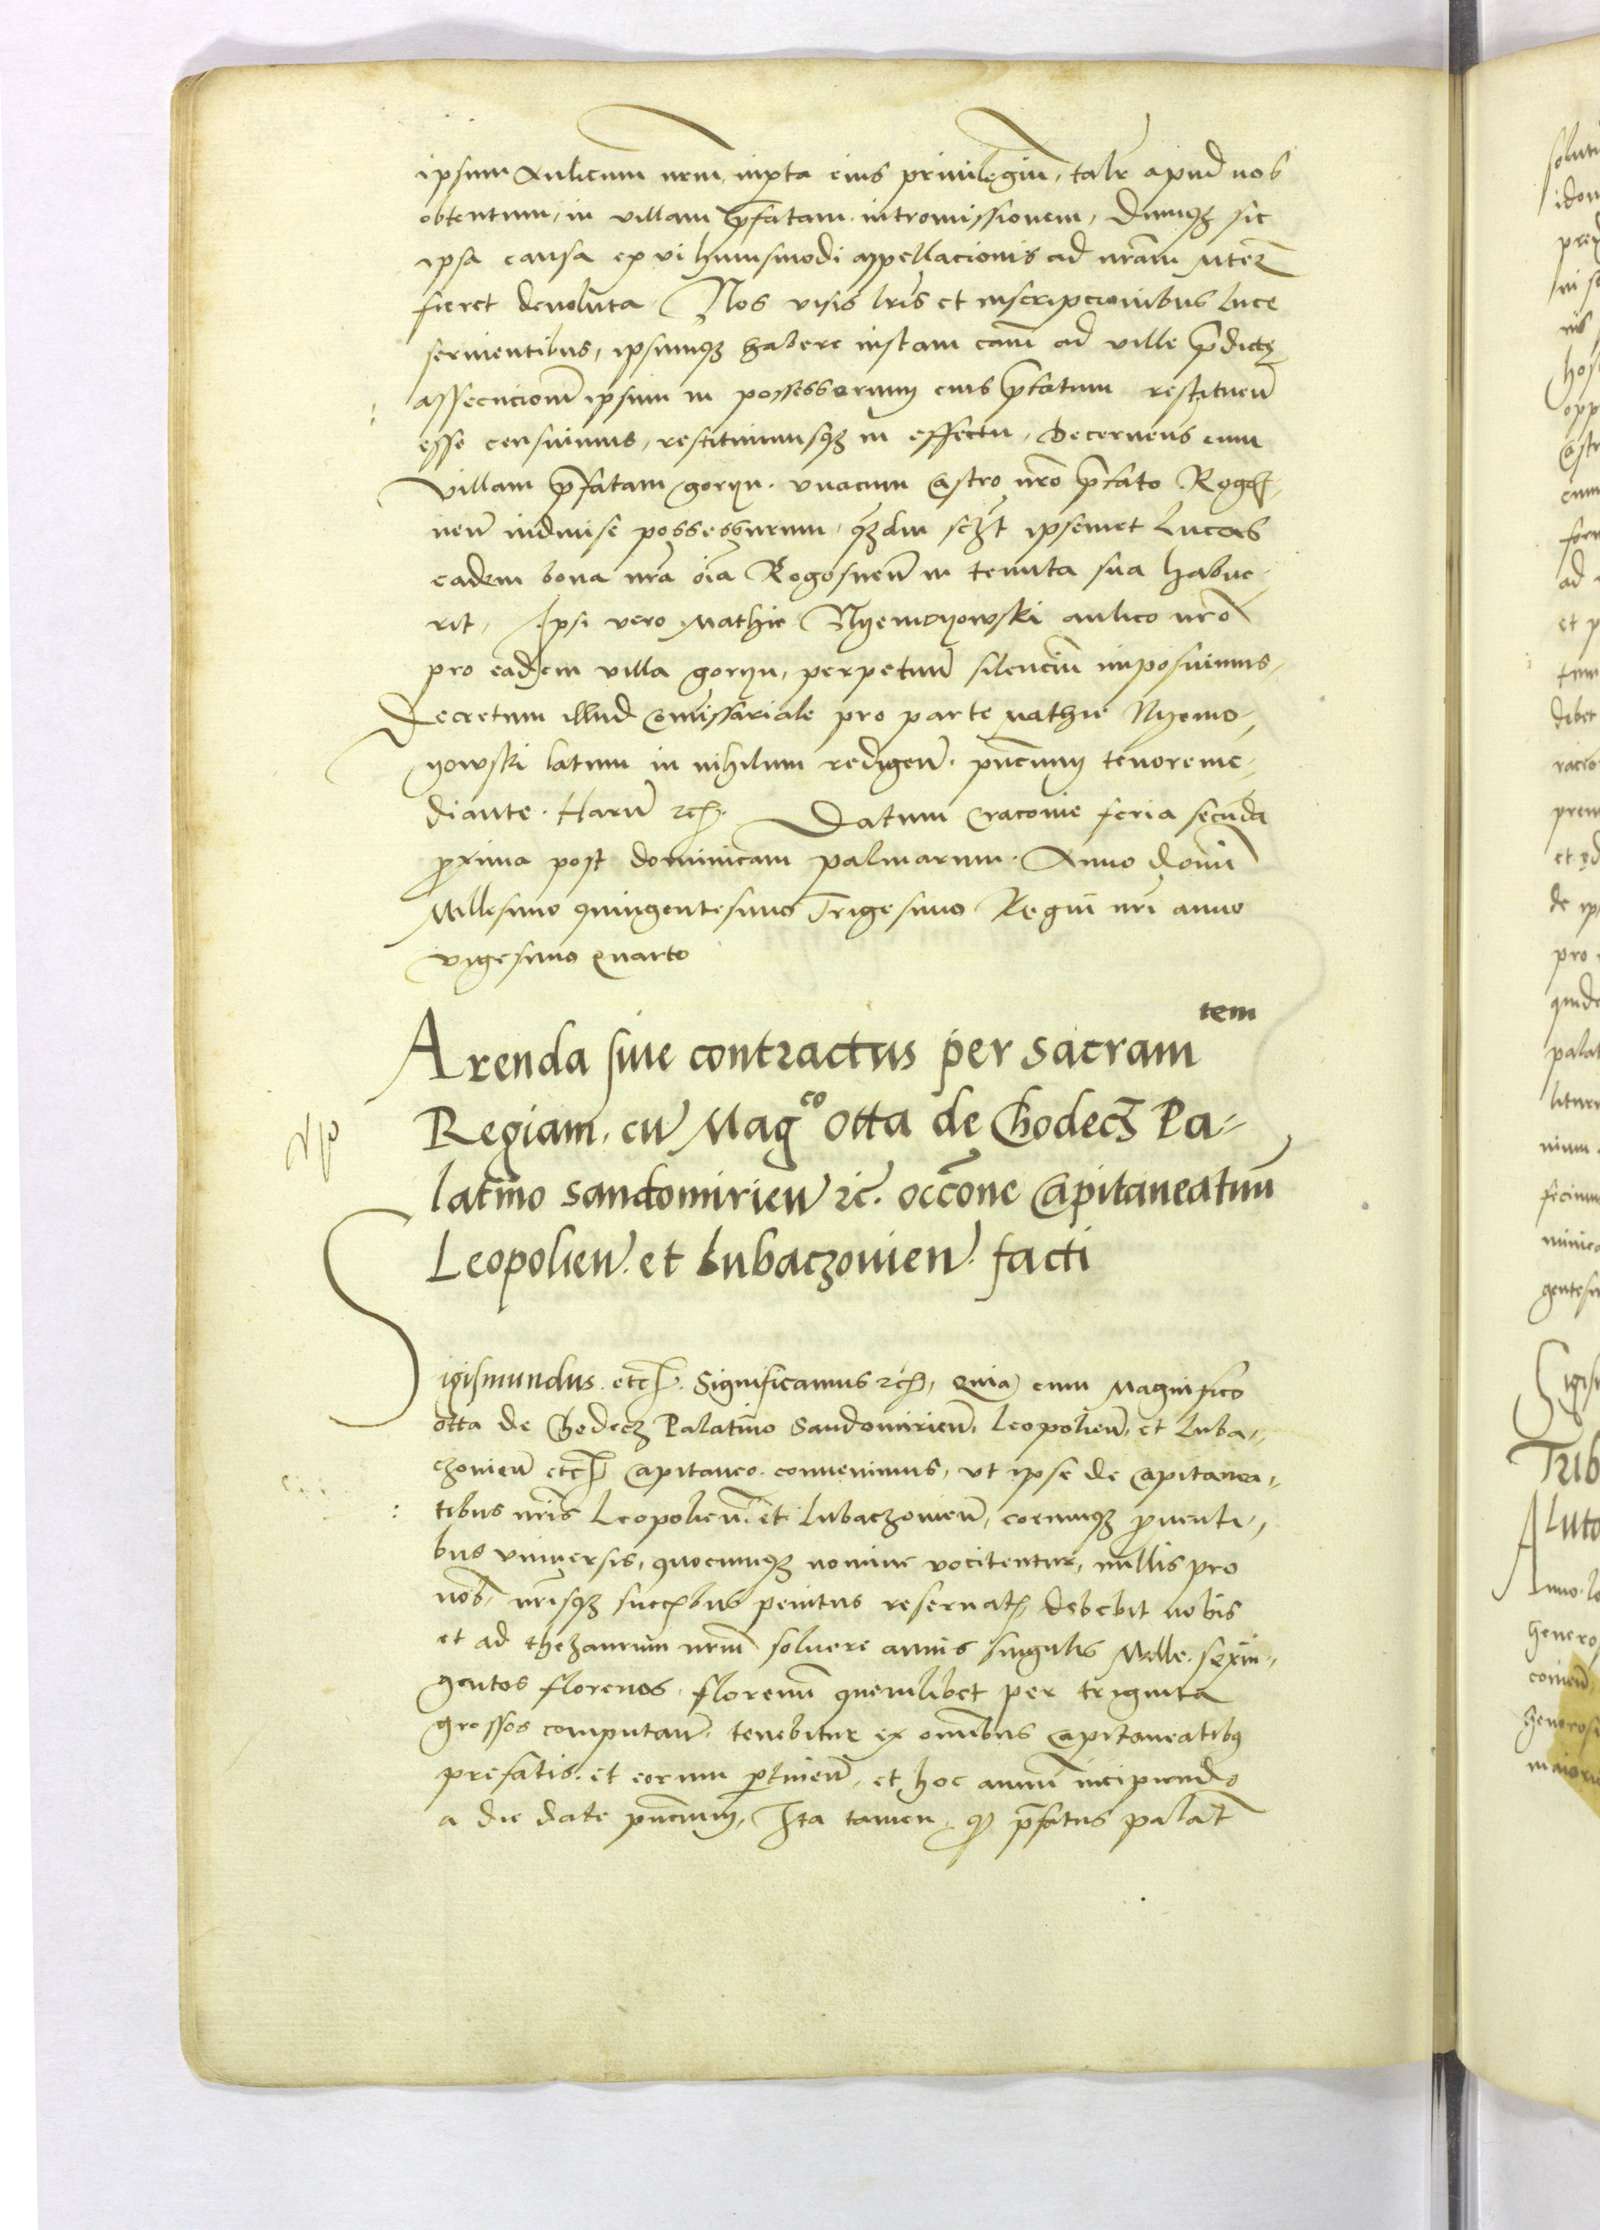 ipsum Aulicum nrm, iuxta eius priuilegiũ, tale apud nos
obtentum, in villam p̃fatam intromissionem, Dumq; sic
ipsa causa ex vi huiusmodi appellacionis ad nrãm M̃tem
fieret deuoluta, Nos visis lris et inscripcionibus Luce
seruientibus, ipsumq; habere iustam cauſ ad ville p̃dictę
assecucionẽ ipsum in possessorium eius p̃fatum restituend̃
esse censuimus, restituimusq; in effectu, Decernens eum
villam p̃fatam goryn. vnacum Castro nrõ p̃fato Rogoſ,
neñ indiuise possessurum, q̃ʒdiu scʒ̃t ipsemet Lucas
eadem bona nrã oĩa Rogosneñ in tenuta sua habue,
rit, Ipsi vero Mathie Nyemoyowski aulico nrõ
pro eadem villa goryn, perpetuũ silenciũ imposuimus,
Decretum illud Com̃issariale pro parte Mathie Nyemo,
yowski latum in nihilum redigeñ. pñcium tenore me,
diante. Harũ ꝛcꝫ. Datum Cracouie feria secũda
p̱xima post dominicam palmarum. Anno dominĩ
Millesimo quingentesimo Trigesimo Regni nrĩ anno
vigesimo quarto
tem
Arenda siue contractus per sacram
Regiam, cũ Mag^co Otta de Chodecʒ Pa-
latino Sandomirieñ ꝛc̃. occõne Capitaneatuũ
Leopolieñ. et Lubaczouieñ. facti
Sigismundus. etcꝫ. Significamus ꝛcꝫ, Quia cum Magnifico
Otta de Chodecz Palatino Sandomirieñ, Leopolieñ, et Luba,
czouieñ etcꝫ Capitaneo. conuenimus, vt ipse de Capitanea,
tibus nrĩs Leopolieñ. et Lubaczouieñ, eorumq; p̱uenti,
bus vniuersis, quocumq; nomine vocitentur, nullis pro
nob̃, nrĩsq; succꝫbus penitus reseruatꝫ debebit nobis
et ad thezaurum nrm̃ soluere annis singulis Mille. sexin,
gentos florenos. florenũ quemlibet per triginta
grossos computañ. tenebitur ex om̃ibus Capitaneatibꝰ
prefatis. et eorum p̱tineñ, et hoc annũ incipiendo
a die date pñcium, Ita tamen, qđ p̃fatus palat̃